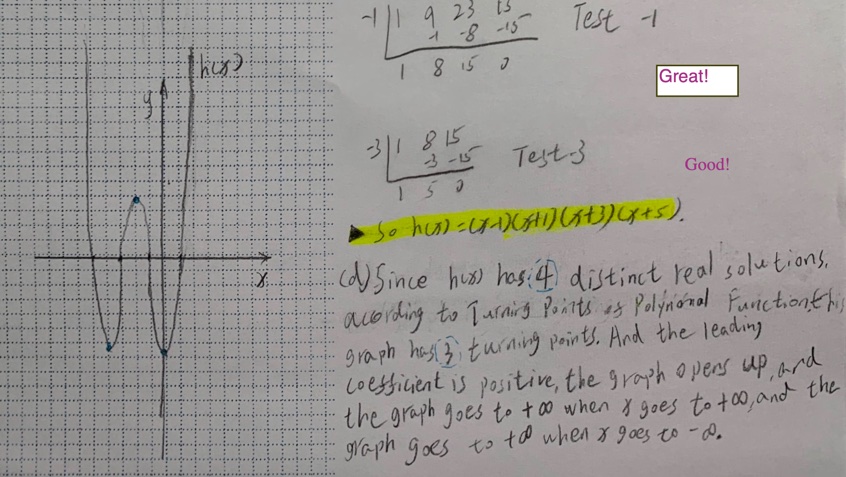 h(x)
y
x
-1 | 1 9 23 15 Test -1
-1 -8 -15
1 8 15 0
Great!
-3 | 1 8 15 Test -3
-3 -15
1 5 0
Good!
So h(x)=(x-1)(x+1)(x+3)(x+5).
(d) Since h(x) has 4 distinct real solutions,
acording to Turning Points of Polynonal Function, this
graph has 3 turning points. And the leading
coefficient is positive, the graph opens up, and
the graph goes to +∞ when x goes to +∞, and the
graph goes to +∞ when x goes to -∞.